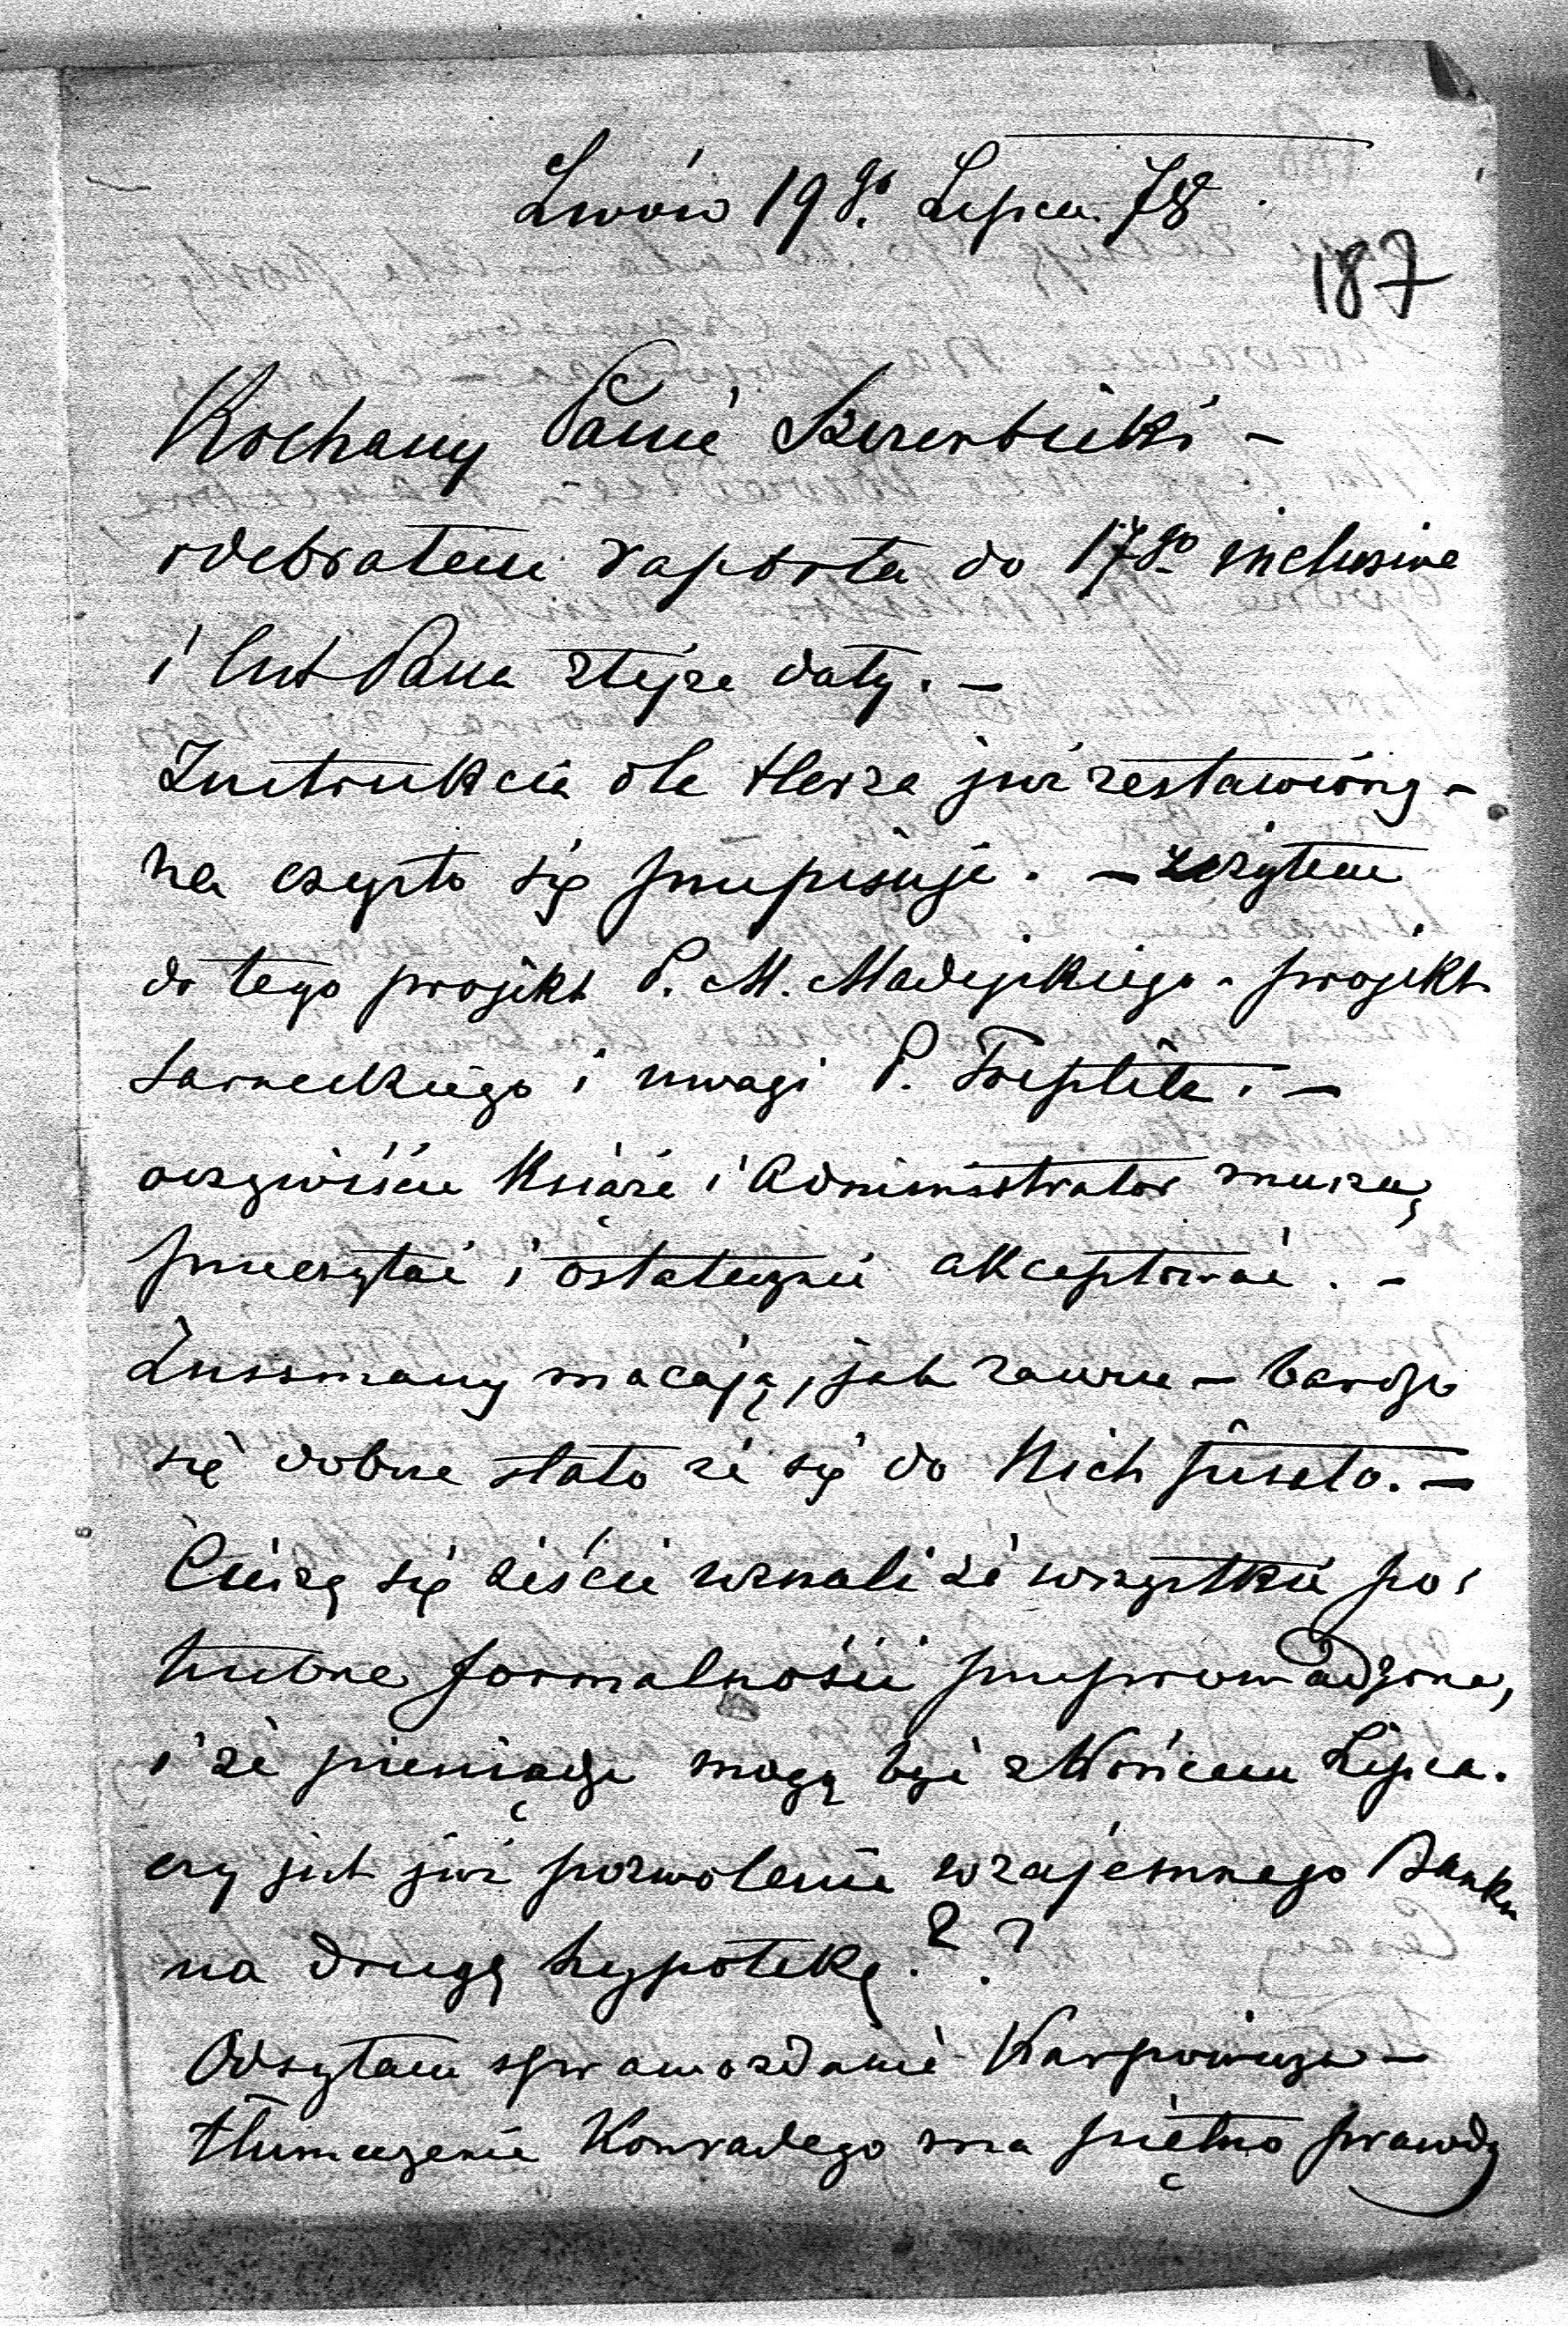 Lwów 19go. Lipca 78.
187
Kochany Panie Szczerbicki –
odebrałem raporta do 17go inclusive
i list Pana z tejże daty. –
Instrukcia dla Herza już zestawioną –
na czysto się przepisuje. – użyłem
do tego projekt P. M. Madejskiego – projekt
Sarneckiego i uwagi P. Treplita. –
oczywiście Książę i Administrator muszą
przeczytać i ostatecznie akceptować. –
Zussmany macają, jak zawsze – bardzo
się dobrze stało że się do Nich pisało. –
Cieszę się żeście uznali że wszystkie po-
trzebne formalności przeprowadzone,
i że pieniądze mogą być z Końcem Lipca.
czy jest już pozwolenie wzajemnego Banku
na drugą hypotekę. ??
Odsyłam sprawozdanie Karpowicza –
tłumaczenie Konradego ma piętno prawdy